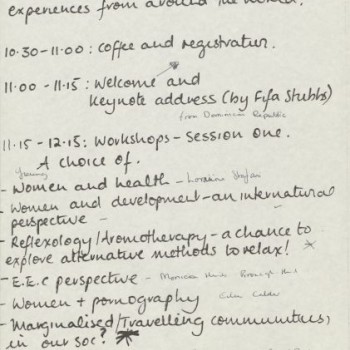 experiences from around the world.
10.30-11.00 : coffee and registration.
11.00 - 11.15 : Welcome and
Keynote address (by Fifa Stubbs)
from Dominican Republic
11.15 - 12.15: Workshops - Session one.
A choice of.
- Women and health - Lorraine
- Women and development - an international
perspective -
- Reflexology/Aromatherapy - a chance to
explore alternative methods to relax!
- E.E.C perspective -
- Women + pornography
- Marginalised/Travelling communities,
in our soc?